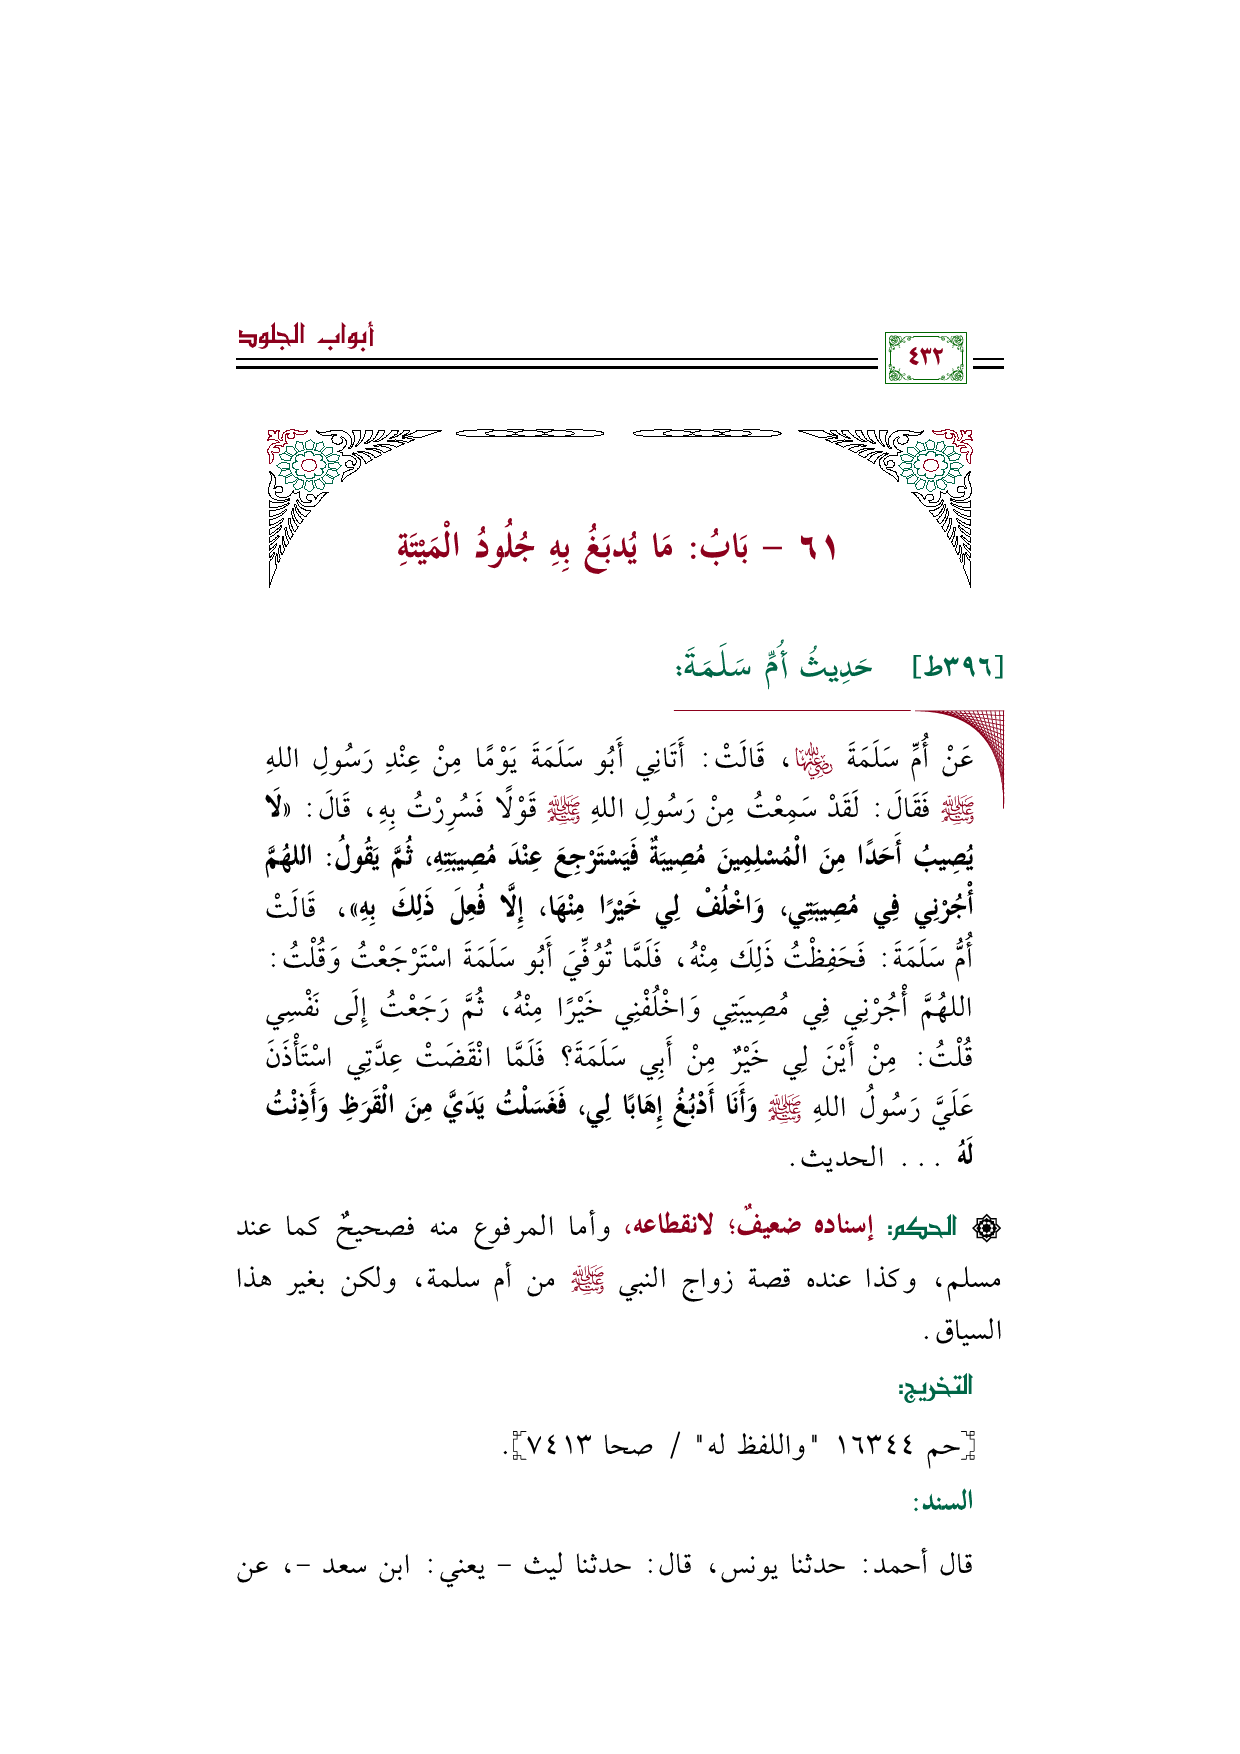 أبواب الجلود
٤٣٢
٦١ – بَابُ: مَا يُدبَغُ بِهِ جُلُودُ الْمَيْتَةِ
[٣٩٦ط] حَدِيثُ أُمِّ سَلَمَةَ:
عَنْ أُمِّ سَلَمَةَ رضي الله عنها، قَالَتْ: أَتَانِي أَبُو سَلَمَةَ يَوْمًا مِنْ عِنْدِ رَسُولِ اللهِ
ﷺ فَقَالَ: لَقَدْ سَمِعْتُ مِنْ رَسُولِ اللهِ ﷺ قَوْلًا فَسُرِرْتُ بِهِ، قَالَ: «لَا
يُصِيبُ أَحَدًا مِنَ الْمُسْلِمِينَ مُصِيبَةٌ فَيَسْتَرْجِعَ عِنْدَ مُصِيبَتِهِ، ثُمَّ يَقُولُ: اللهُمَّ
أْجُرْنِي فِي مُصِيبَتِي، وَاخْلُفْ لِي خَيْرًا مِنْهَا، إِلَّا فُعِلَ ذَلِكَ بِهِ»، قَالَتْ
أُمُّ سَلَمَةَ: فَحَفِظْتُ ذَلِكَ مِنْهُ، فَلَمَّا تُوُفِّيَ أَبُو سَلَمَةَ اسْتَرْجَعْتُ وَقُلْتُ:
اللهُمَّ أْجُرْنِي فِي مُصِيبَتِي وَاخْلُفْنِي خَيْرًا مِنْهُ، ثُمَّ رَجَعْتُ إِلَى نَفْسِي
قُلْتُ: مِنْ أَيْنَ لِي خَيْرٌ مِنْ أَبِي سَلَمَةَ؟ فَلَمَّا انْقَضَتْ عِدَّتِي اسْتَأْذَنَ
عَلَيَّ رَسُولُ اللهِ ﷺ وَأَنَا أَدْبُغُ إِهَابًا لِي، فَغَسَلْتُ يَدَيَّ مِنَ الْقَرَظِ وَأَذِنْتُ
لَهُ ... الحديث.
الحكم: إسناده ضعيفٌ؛ لانقطاعه، وأما المرفوع منه فصحيحٌ كما عند
مسلم، وكذا عنده قصة زواج النبي ﷺ من أم سلمة، ولكن بغير هذا
السياق.
التخريج:
[حم ١٦٣٤٤ "واللفظ له" / صحا ٧٤١٣].
السند:
قال أحمد: حدثنا يونس، قال: حدثنا ليث – يعني: ابن سعد –، عن